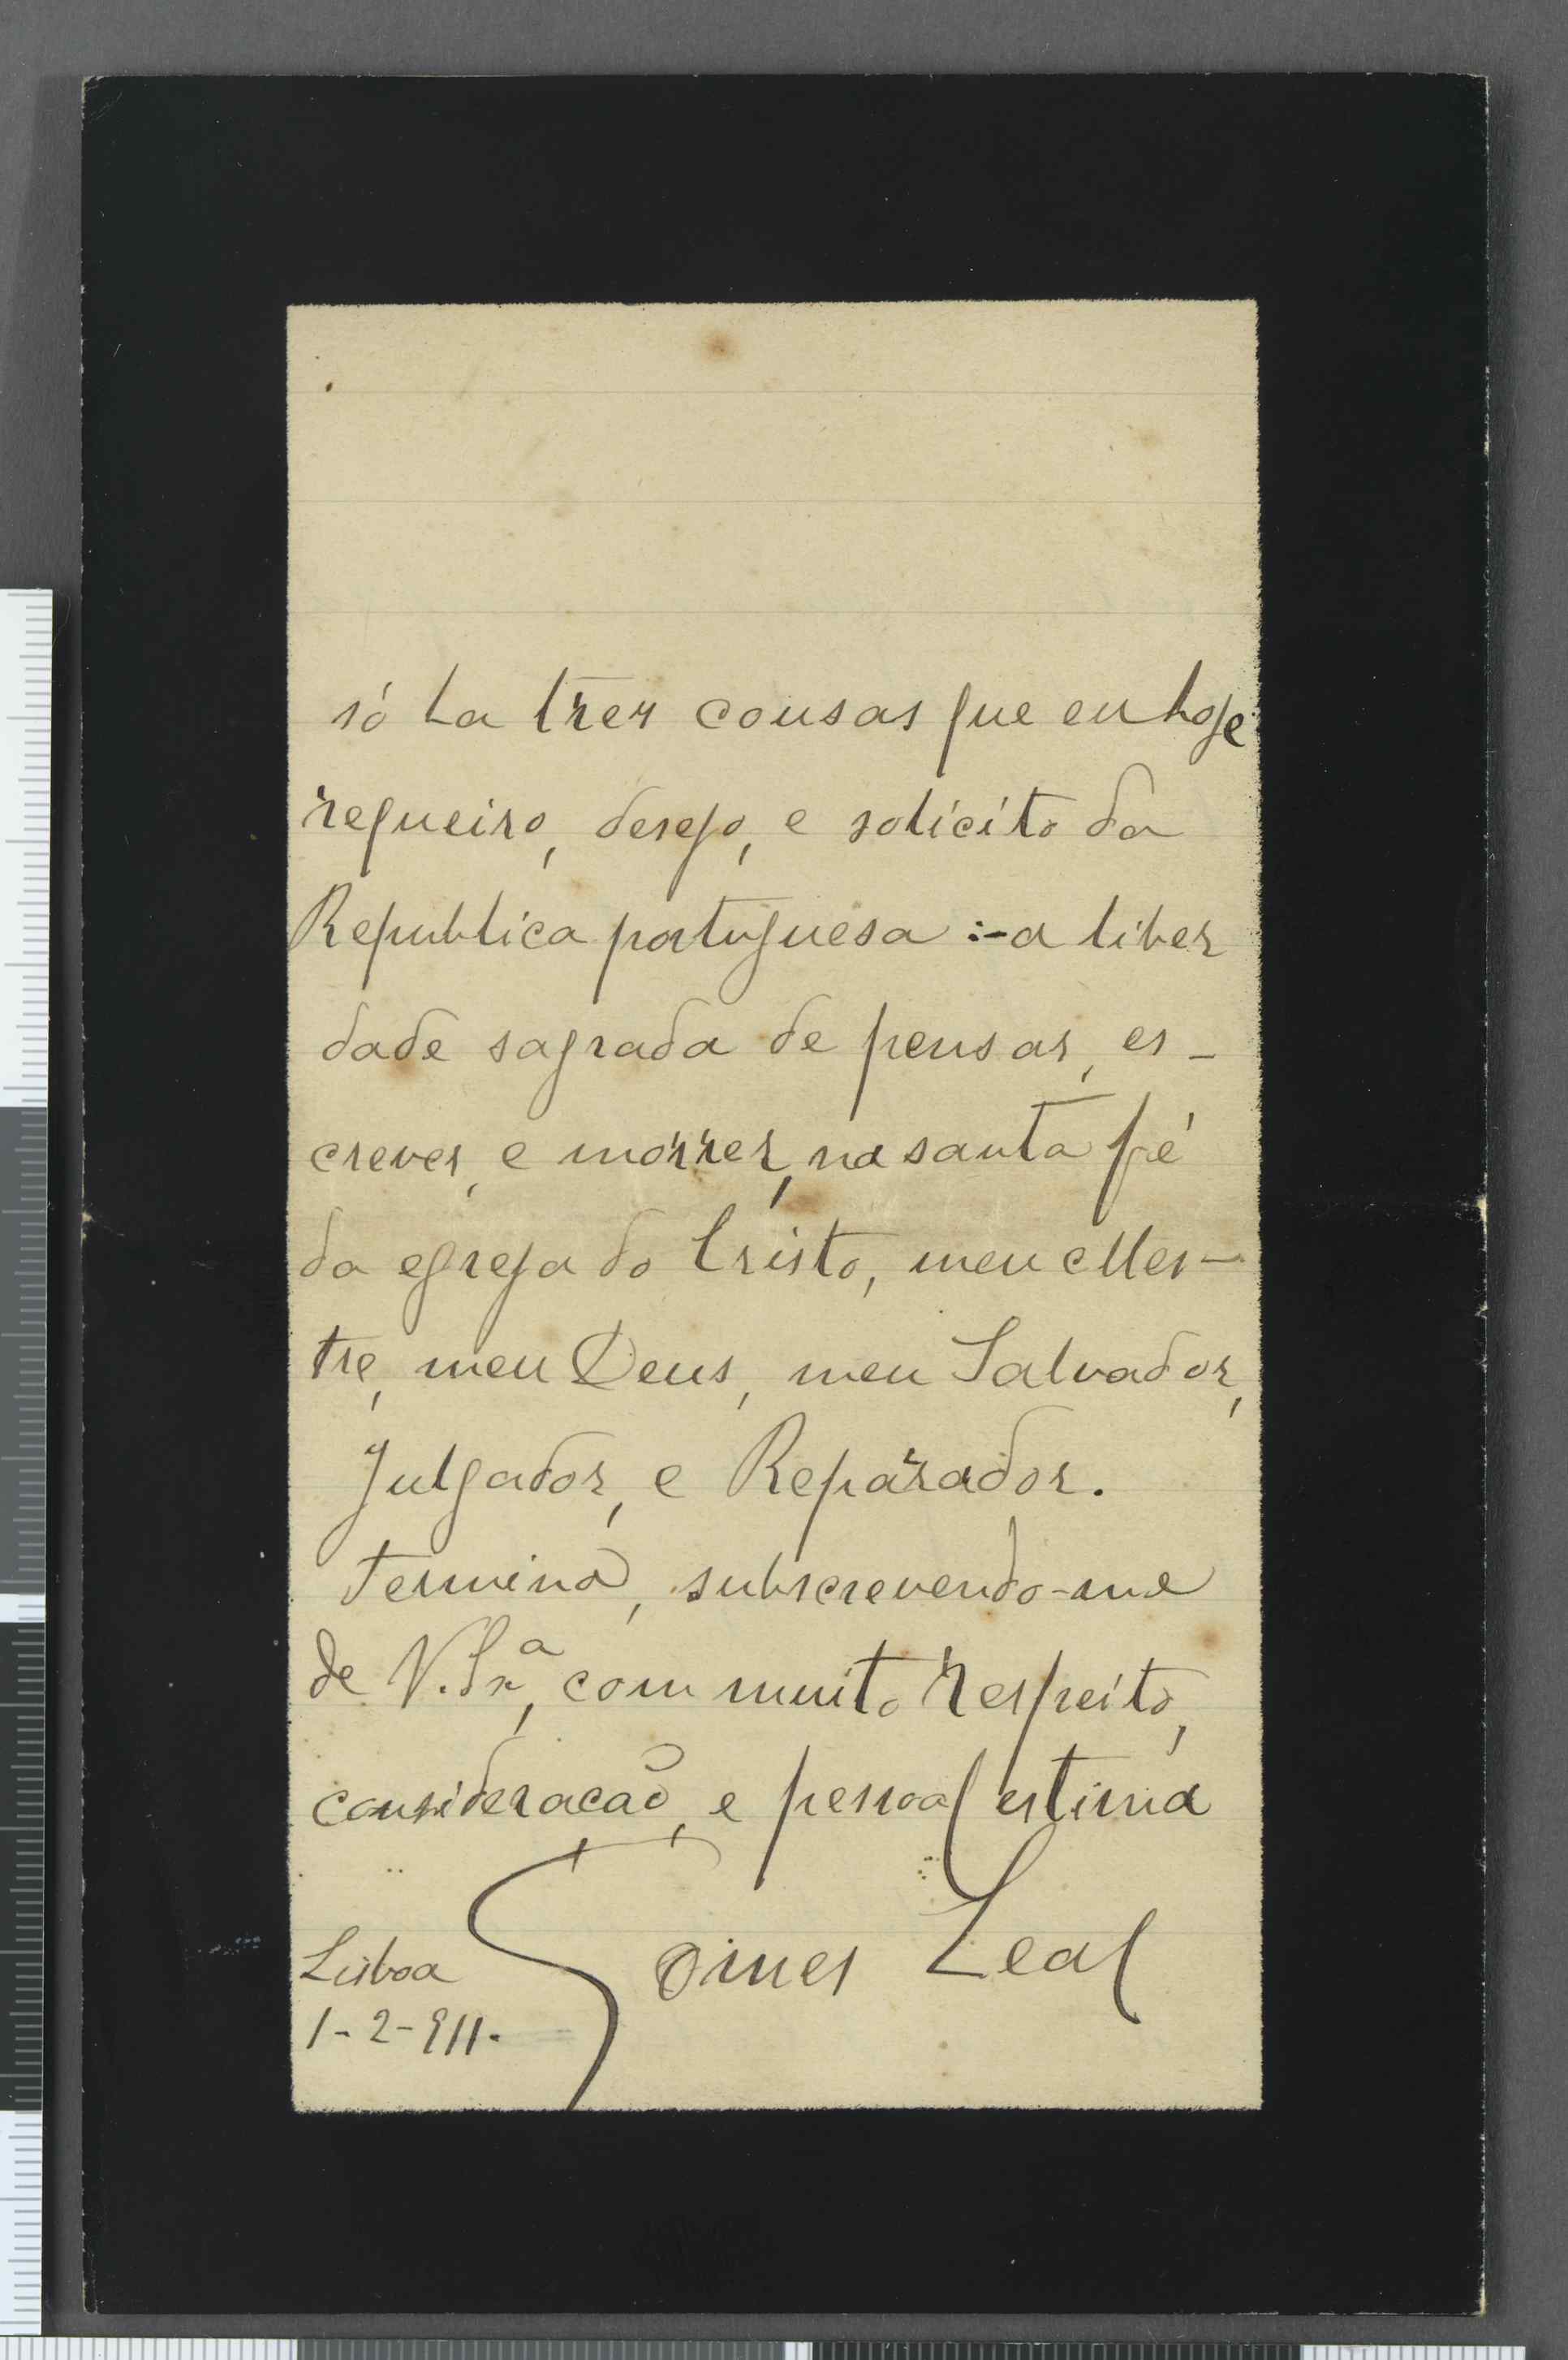 só ha tres cousas que eu hoje
requeiro, desejo, e solicito da
Republica portuguesa :- a liber
dade sagrada de pensar, es-
crever, e morrer, na santa fé
da egreja do Cristo, meu Mes-
tre, meu Deus, meu Salvador,
Julgador, e Reparador.
Termino, subscrevendo-me
de V. Sr.ª, com muito respeito,
consideracão, e pessoal estima
Gomes Leal
Lisboa
1-2-911.